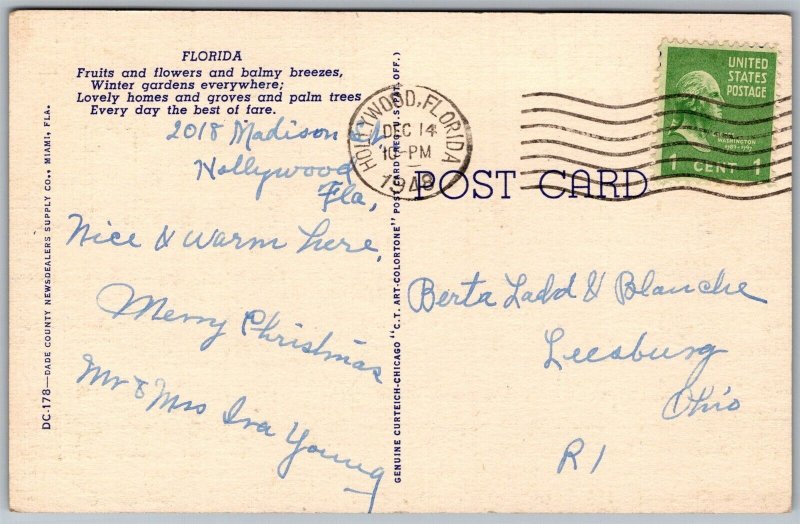 FLORIDA
Fruits and flowers and balmy breezes,
Winter gardens everywhere;
Lovely homes and groves and palm trees
Every day the best of fare.
2018 Madison St
Hollywood
Fla,
Nice & warm here,
Merry Christmas
Mr & Mrs Ira Young
DC-178—DADE COUNTY NEWSDEALERS SUPPLY CO., MIAMI, FLA.
GENUINE CURTEICH-CHICAGO "C.T. ART-COLORTONE" POST CARD (REG. U.S. PAT. OFF.)
HOLLYWOOD, FLORIDA
DEC 14
10-PM
1948
POST CARD
UNITED
STATES
POSTAGE
WASHINGTON
1 CENT 1
Berta Ladd & Blanche
Leesburg
Ohio
R 1